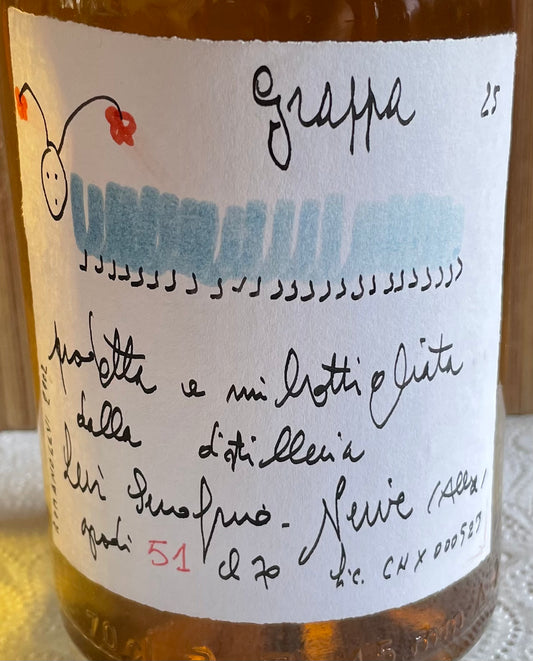 Grappa 25
prodotta e imbottigliata
dalla distilleria
Levi Serafino - Neive (Alba)
gradi 51 cl 70 Lic. CNX000527
70